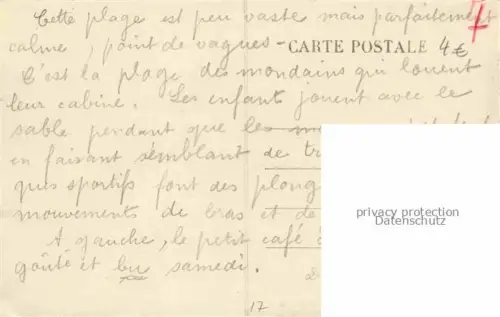 Cette plage est peu vaste mais parfaitement
calme, point de vagues -
CARTE POSTALE 4€
C'est la plage des mondains qui louent
leur cabine. Les enfants jouent avec le
sable pendant que les
en faisant semblant de
ques sportifs font des
mouvements de bras et de
privacy protection
Datenschutz
A gauche, le petit café
goûté et bu samedi.
17